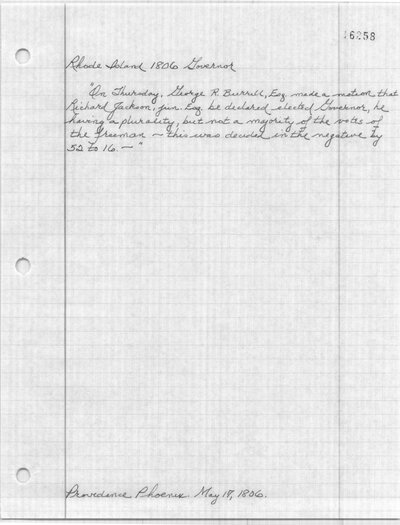 16258
Rhode Island 1806 Governor
"On Thursday, George R. Burrill, Esq made a motion that
Richard Jackson, jun. Esq be declared elected Governor, he
having a plurality, but not a majority of the votes of
the freeman — this was decided in the negative by
52 to 16. — "
Providence Phoenix. May 17, 1806.